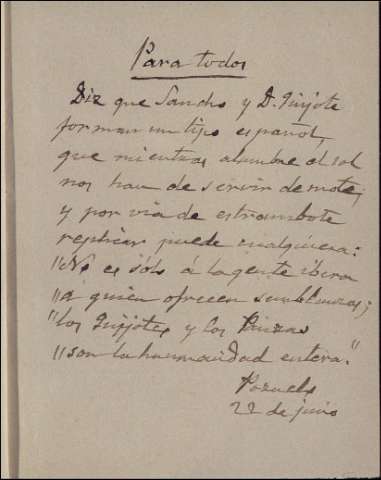 Para todos
Diz que Sancho y D. Quijote
forman un tipo español,
que mientras alumbre el sol
nos han de servir de mote;
y por via de estrambote
replicar puede cualquiera:
"No es sólo á la gente ibera
"á quien ofrecen semblanzas;
"los Quijotes y los Panzas
"son la humanidad entera."
22 de junio